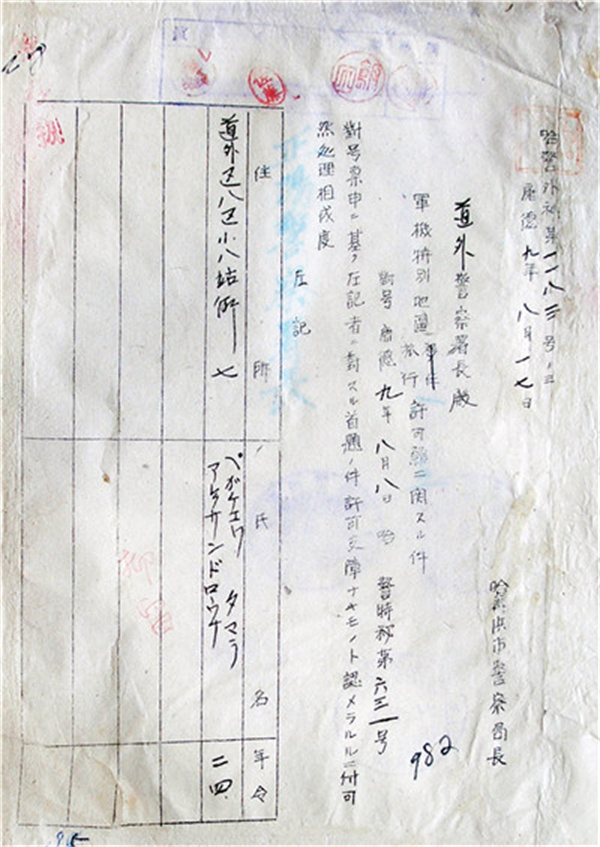 哈警外秘第一一八三号ノ三
康徳九年八月一七日
哈爾浜市警察局長
道外警察署長殿
軍機特別地區旅行許可願ニ関スル件
対号康徳九年八月八日哈警特秘第六三一号
対号票申ニ基キ左記者ニ対スル首題ノ件許可支障ナキモノト認メラルルニ付可
然処理相成度
左記
住所
氏名
年令
道外区八区小八站街七
タマラ
アレクサンドロウナ
二四
982